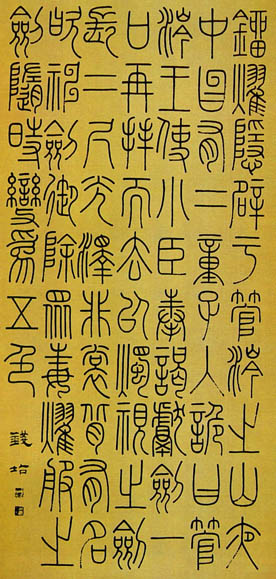 鎦燿隱辟于管涔之山夜
中曶有二童子入詭曰管
涔王使小臣奉謁獻劍一
口再拜而去以燭視之劍
長二尺光澤非常背有名
神劍御除眾毒燿服之
劍隨時變爲五色
錢坫